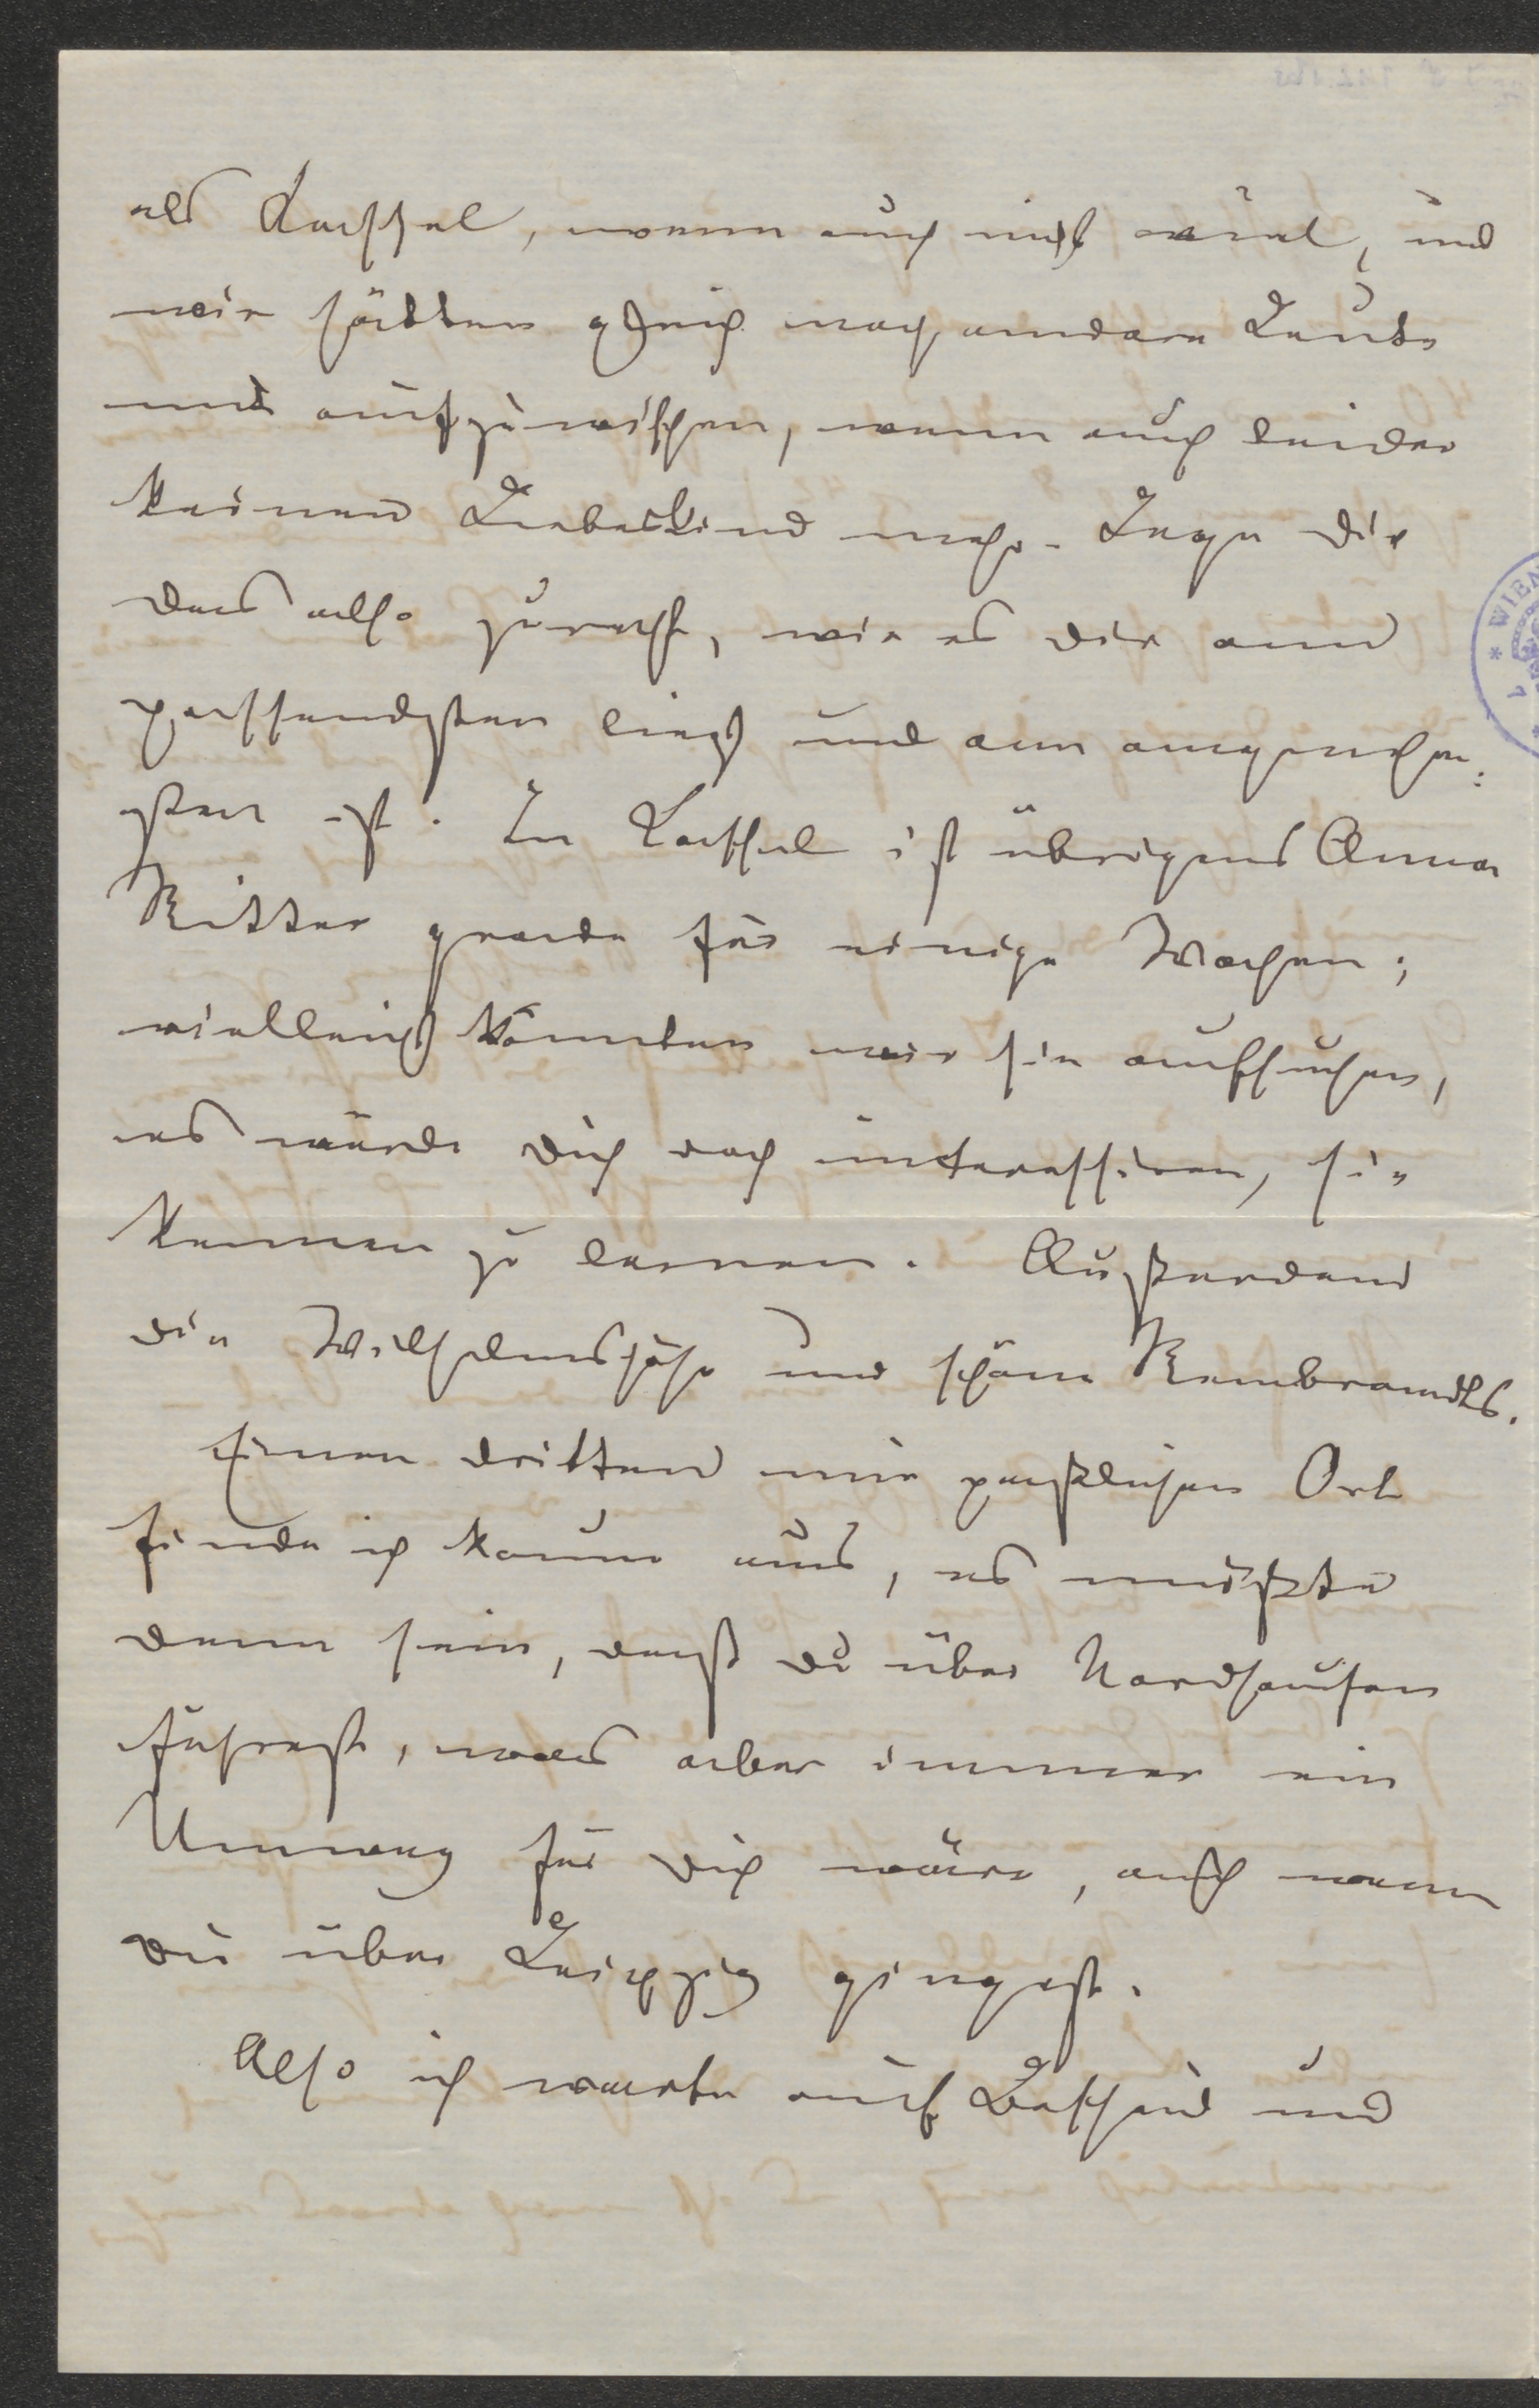 als Kassel, wenn auch nicht viel, und
wir hätten gleich noch andere Leute
mit aufzuweisen, wenn auch leider
keinen Liebeskind mehr. Lege dir
das also zurecht, wie es dir am
passendsten liegt und am angenehm=
sten ist. In Kassel ist übrigens Anna
Ritter grade für einige Wochen;
vielleicht könnten wir sie aufsuchen,
es würde dich doch interessiren, sie
kennen zu lernen. Außerdem
die Wilhelmshöhe und schöne Rembrandts.
Einen dritten mir paßlichen Ort
finde ich kaum aus, es müßte
denn sein, daß du über Nordhausen
führest, was aber immer ein
Umweg für dich wäre, auch wenn
du über Leipzig gingest.
Also ich warte auf Bescheid und
WIEN